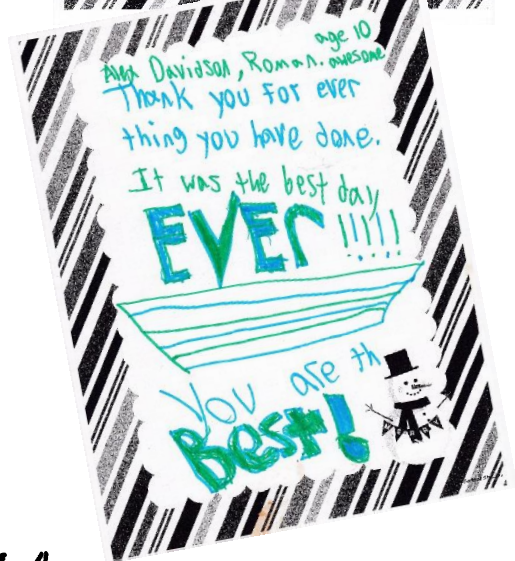 age 10
Alex Davidson, Roman. awesome
Thank you for ever
thing you have done.
It was the best day
EVEr !!!!!
You are th
Best!
MERRY